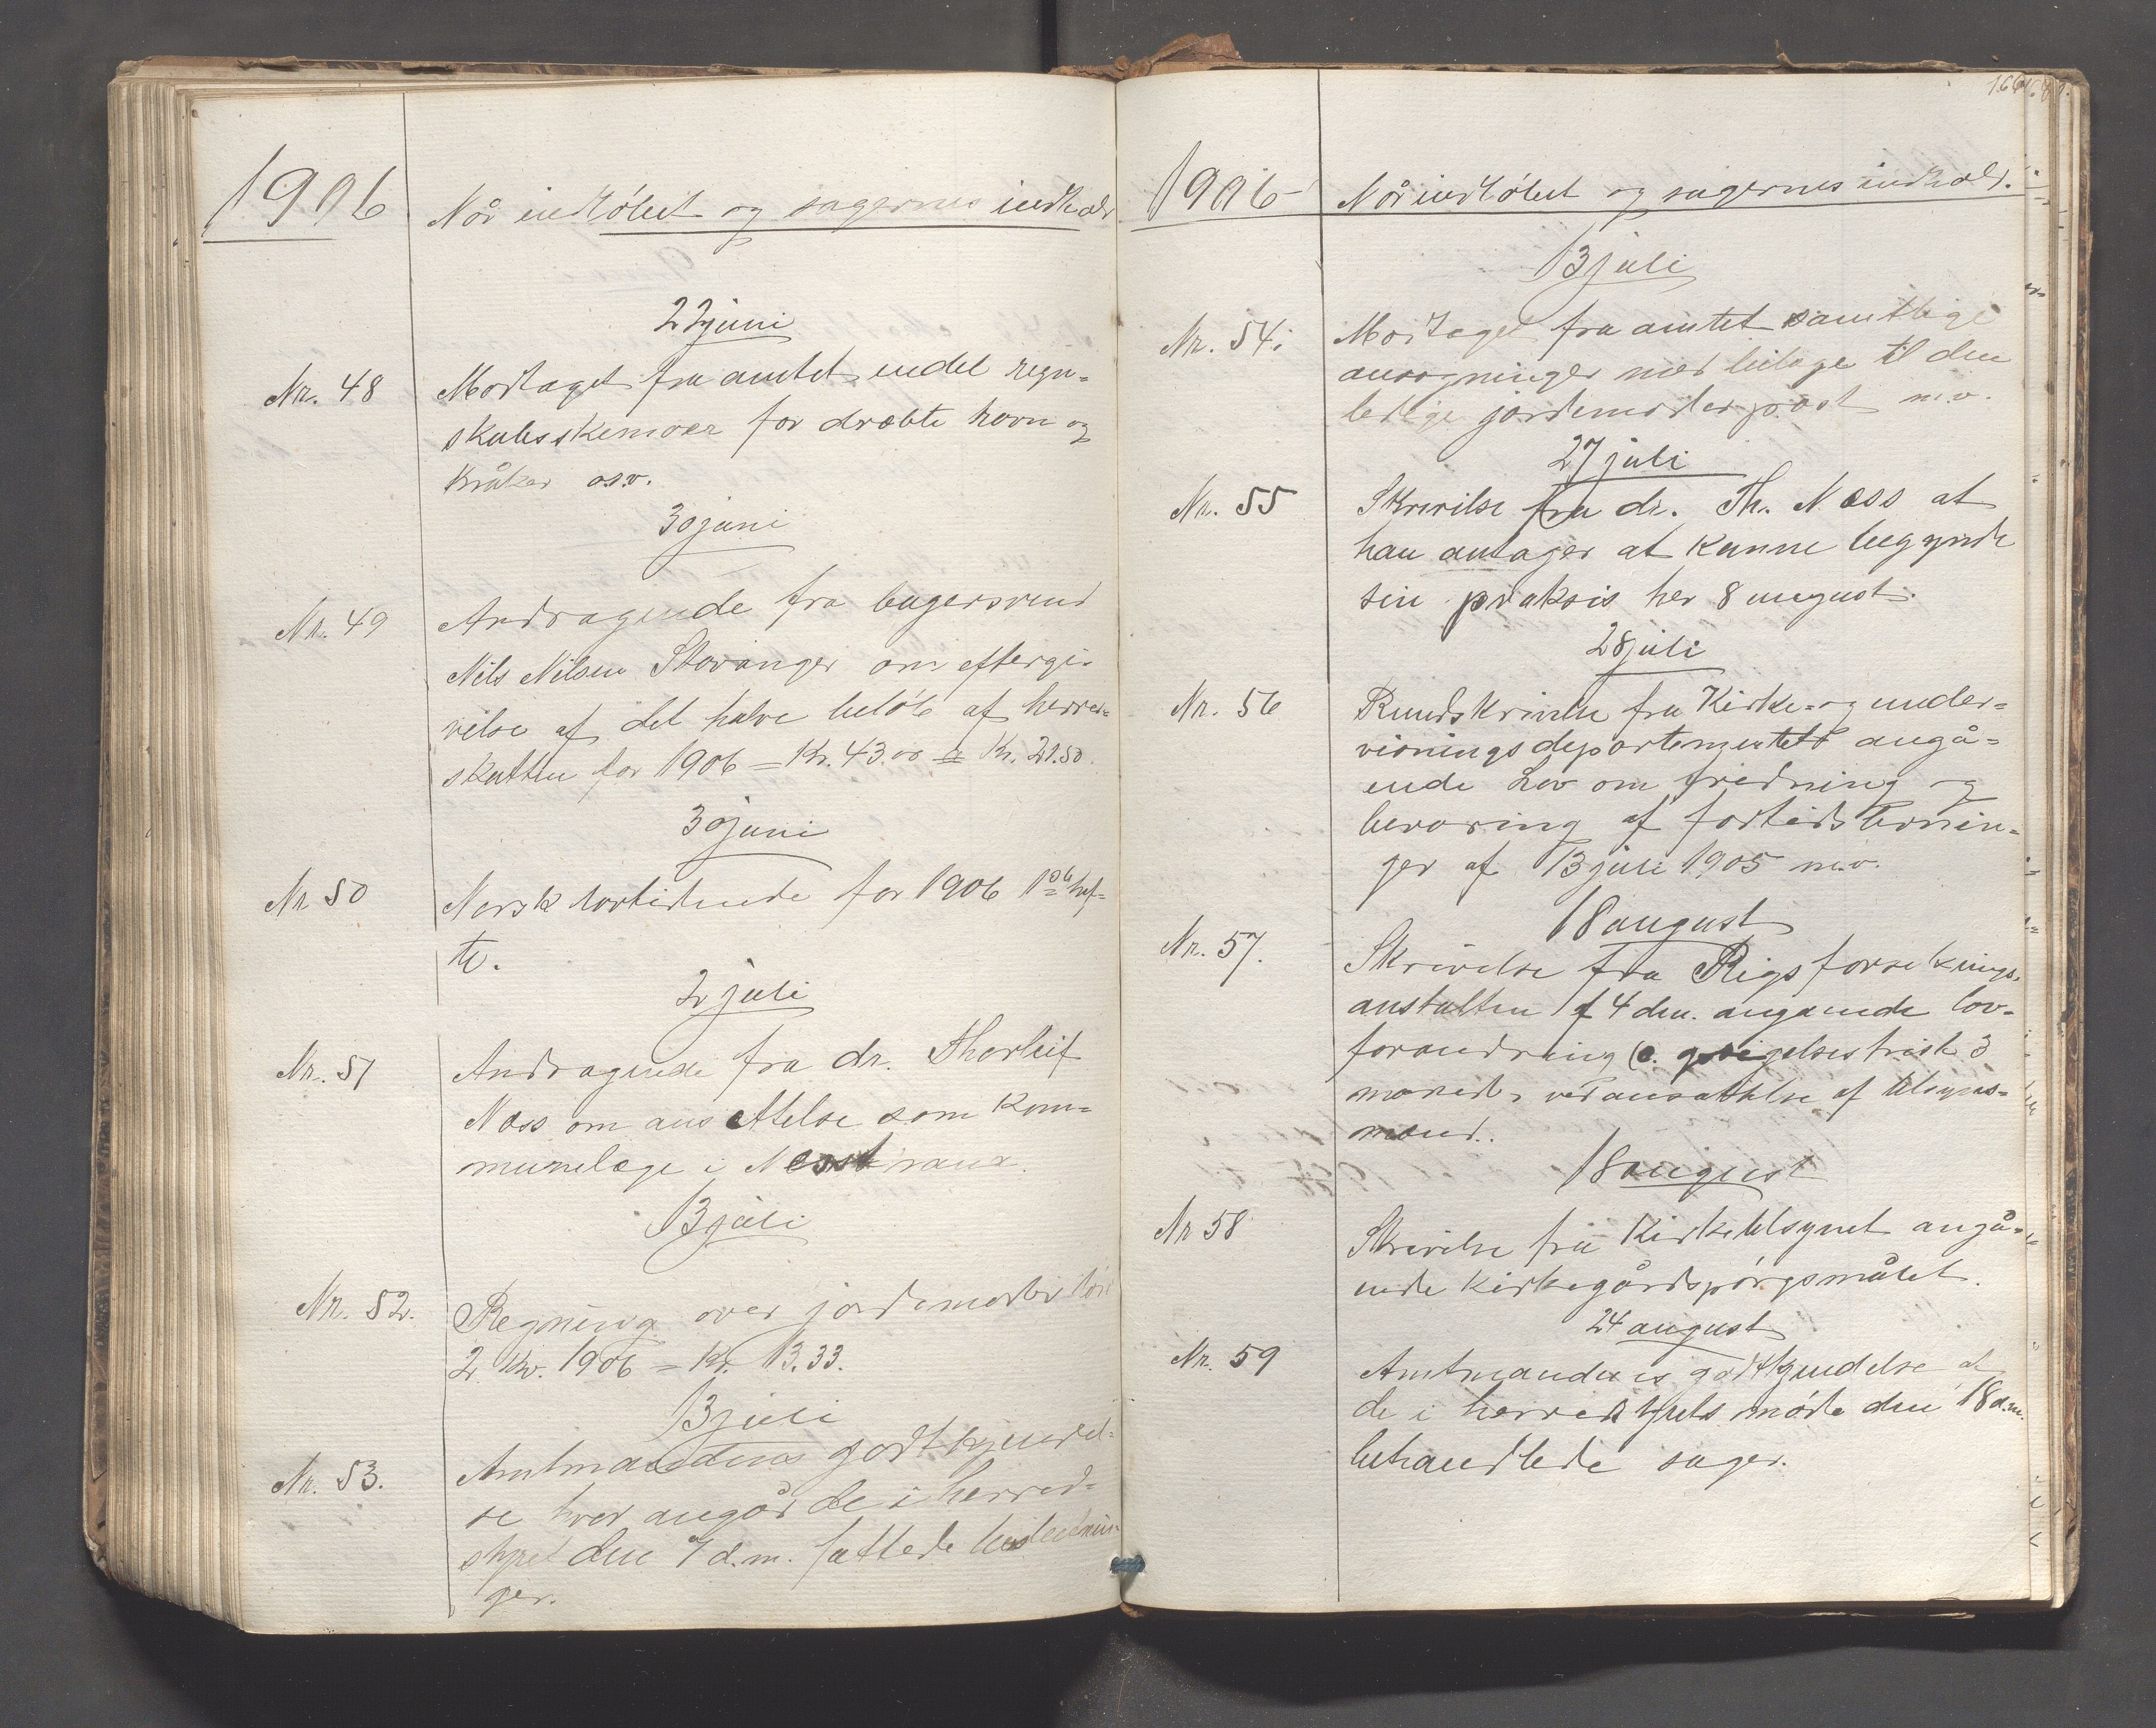 1906
Når indløbet og sagernes indhold
22 juni
Nr. 48
Modtaget fra amtet endel regn-
skabsskemaer for dræbte ravn og
kråker o.s.v.
30 juni
Nr. 49
Andragende fra bagersvend
Nils Nilsen Stavanger om eftergi-
velse af det halve beløb af herreds-
skatten for 1906 = Kr. 43.00 = Kr. 21.50.
30 juni
Nr 50
Norsk lovtidende for 1906 1ste hef-
te.
2 juli
Nr. 51
Andragende fra dr. Thorleif
Næss om ansættelse som kom-
munelæge i Nærstrand.
13 juli
Nr. 52.
Regning over jordemoderløn
2 kv. 1906 = Kr. 13.33.
13 juli
Nr. 53.
Amtmandens godkjendel-
se hvad angår de i herred-
styret den 7 d.m. fattede beslutnin-
ger.
166
1906
Når indløbet og sagernes indhold.
13 juli
Nr. 54.
Modtaget fra amtet samtlige
ansøgninger med bilage til den
ledige jordemoderpost m.v.
27 juli
Nr. 55
Skrivelse fra dr. Th. Næss at
han antager at kunne begynde
sin praksis her 8 august.
28 juli
Nr. 56
Rundskrivelse fra Kirke- og under-
visningsdepartementet angå-
ende Lov om fredning og
bevaring af fortidslevnin-
ger af 13 juli 1905 m.v.
18 august
Nr. 57.
Skrivelse fra Rigsforsikrings-
anstalten af 4 den. angående lov-
forandring (o. opsigelsesfrist 3
måneder ved ansættelse af tilsyns-
mænd.
18 august
Nr 58
Skrivelse fra Kirketilsynet angå-
ende Kirkegårdspørgsmålet.
24 august
Nr. 59
Amtmandens godkjendelse af
de i herredstyrets møde den 18 d.m.
behandlede sager.